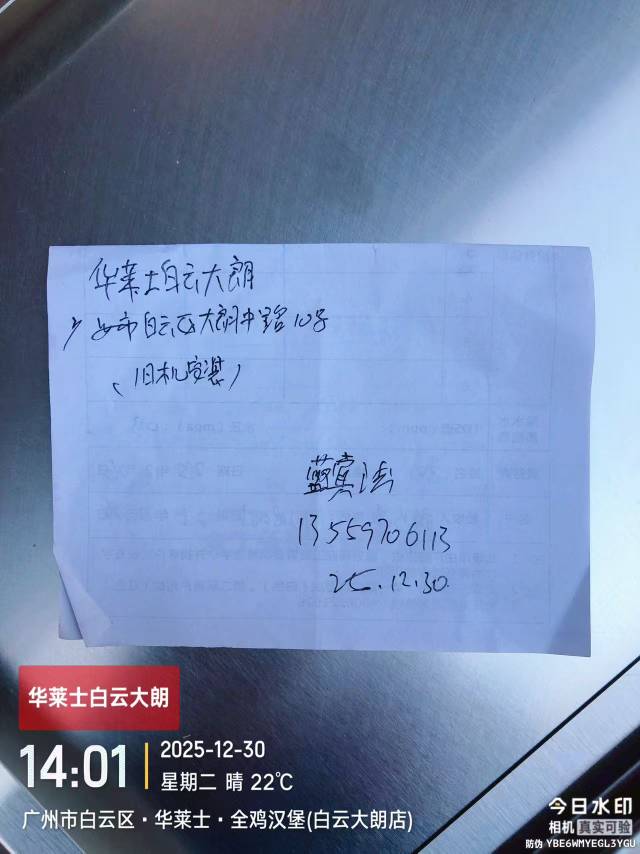 华莱士白云大朗
广州市白云区大朗中路10号
(旧机安装)
13559706113
25.12.30
华莱士白云大朗
14:01
2025-12-30
星期二 晴 22℃
广州市白云区·华莱士·全鸡汉堡(白云大朗店)
今日水印
相机 真实可验
防伪 YBE6WMYEGL3YGU